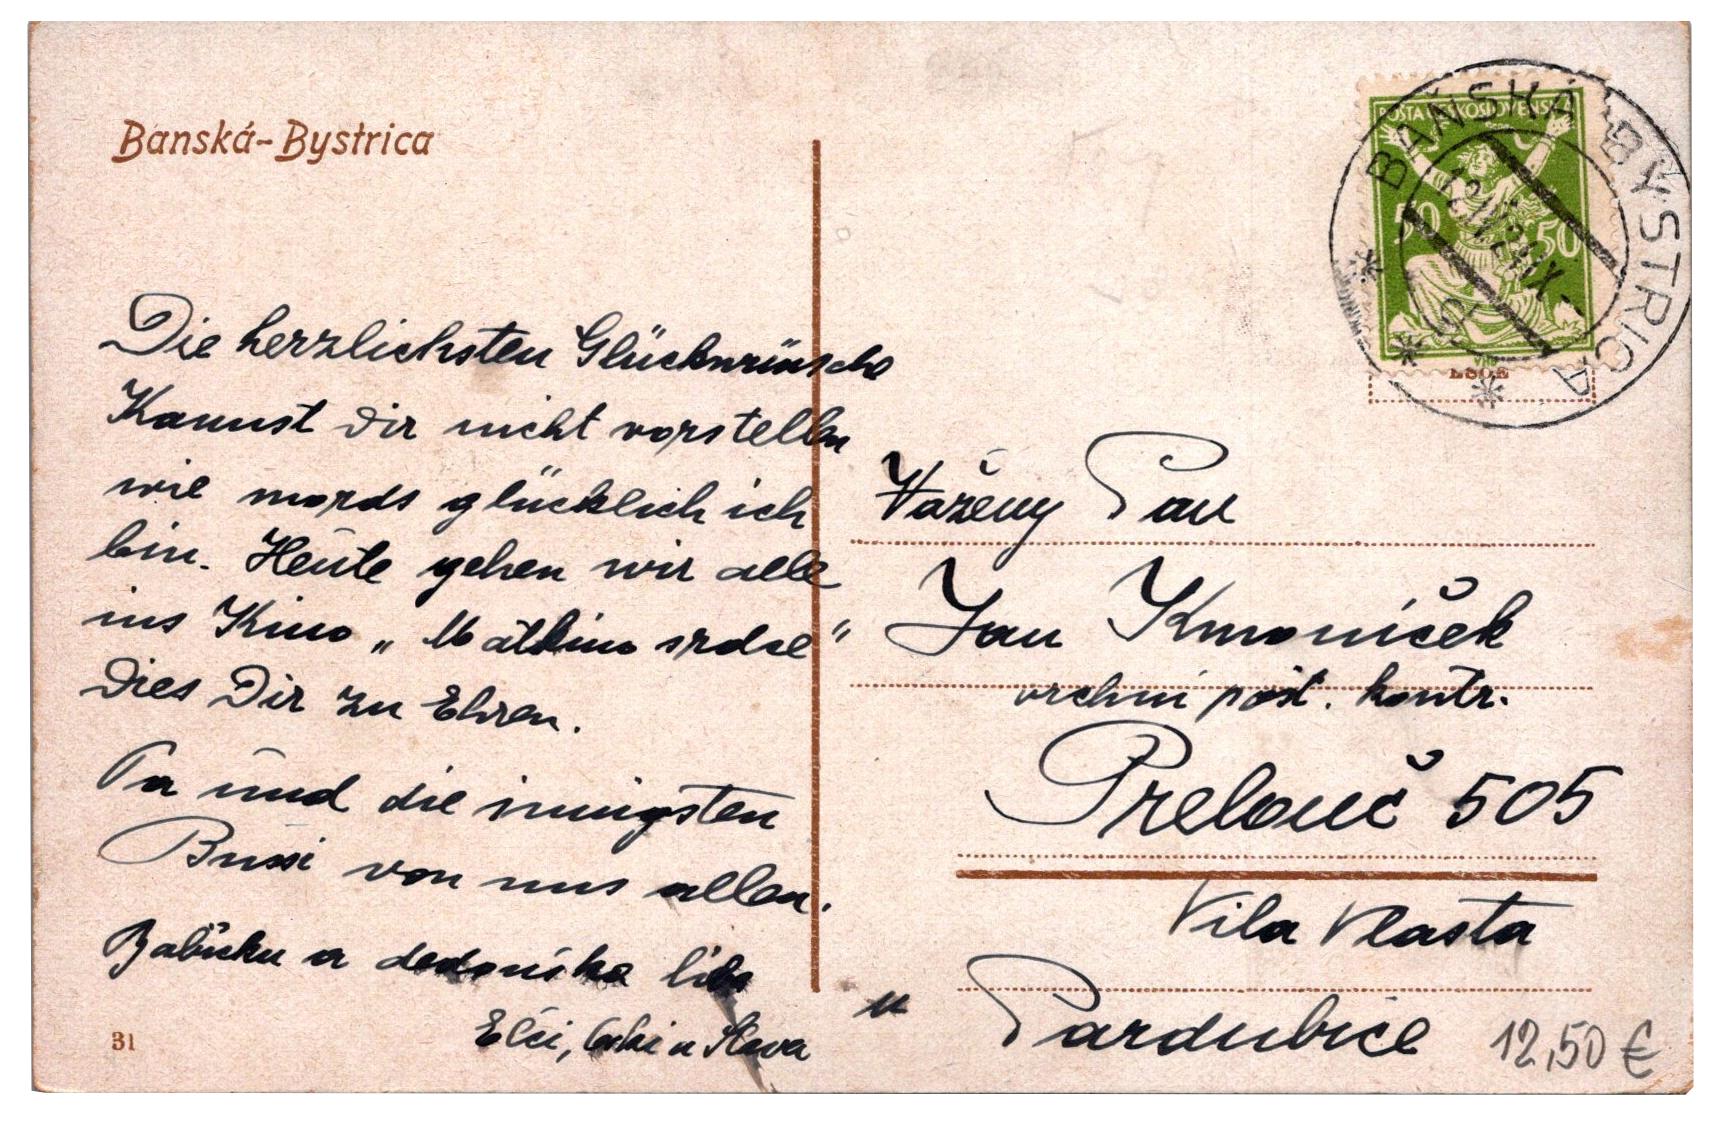 Banská-Bystrica
POŠTA ČESKOSLOVENSKÁ
50 50
BAŇSKÁ BYSTRICA
Die herzlichsten Glückwünsche
Kannst Dir nicht vorstellen
wie mords glücklich ich
bin. Heute gehen wir alle
ins Kino „Matkino srdce“
Dies Dir zu Ehren.
Pa und die innigsten
Bussi von uns allen.
Babičku a dedouška líba
Elči, a Slava
Vážený Pan
Jan Kmoníček
vrchní pošt. kontr.
Prelouč 505
Vila Vlasta
u Pardubice
31
12,50 €